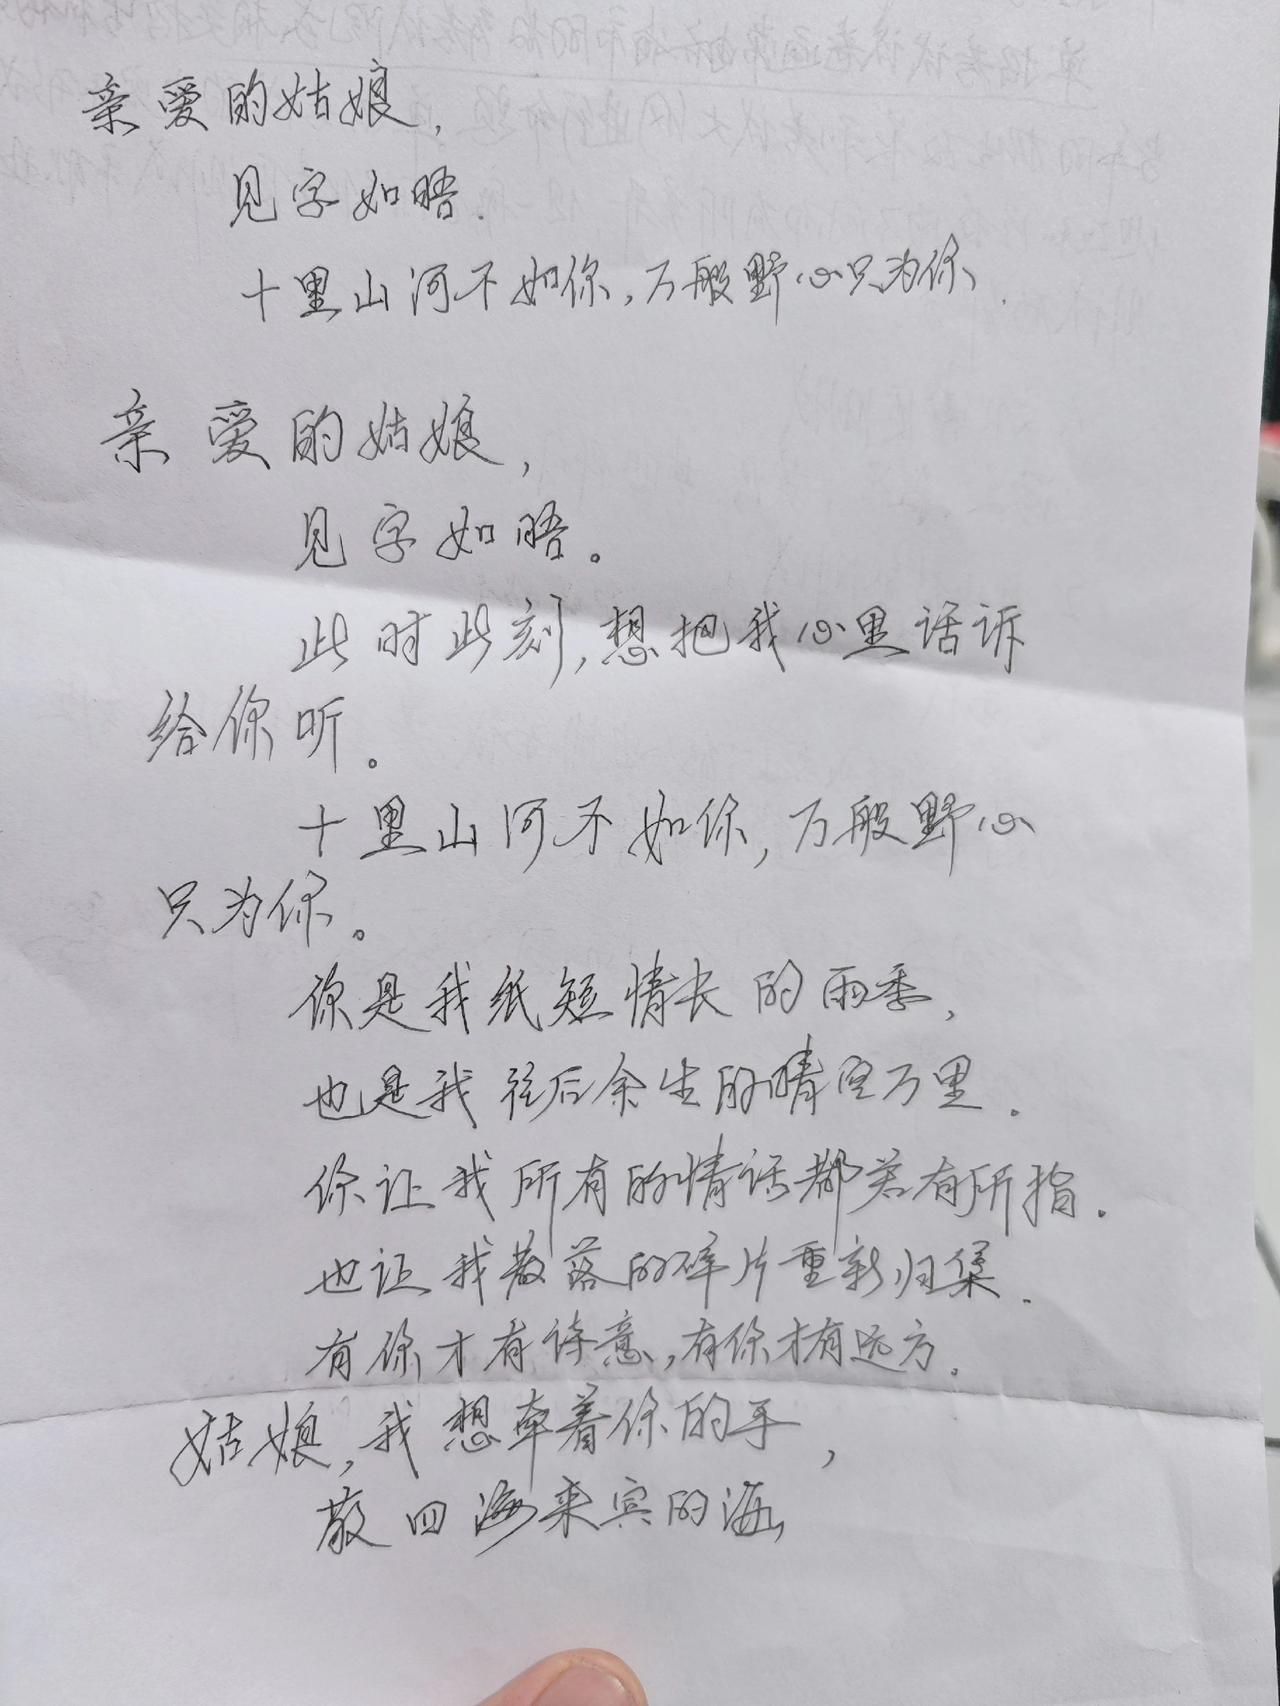 亲爱的姑娘，
见字如晤.
十里山河不如你，万般野心只为你.
亲爱的姑娘，
见字如晤。
此时此刻，想把我心里话诉
给你听。
十里山河不如你，万般野心
只为你。
你是我纸短情长的雨季，
也是我往后余生的晴空万里.
你让我所有的情话都若有所指.
也让我散落的碎片重新归集.
有你才有诗意，有你才有远方.
姑娘，我想牵着你的手，
敬四海来宾的酒